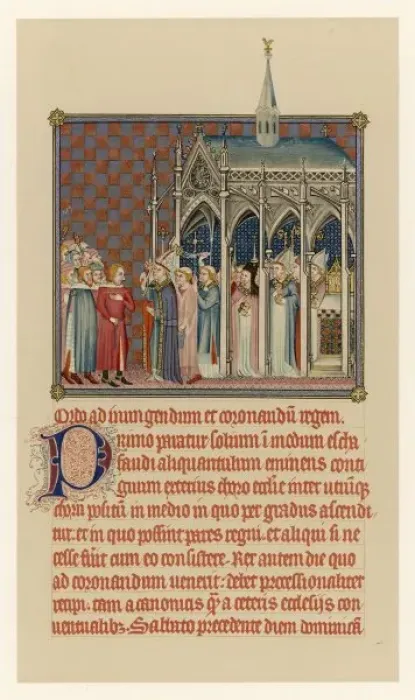 Ordo ad inungendum et coronandū regem.
Primo paratur solium ī modum escha
faudi aliquantulum eminens conti
guum exterius choro ecclie inter utrūq̄
chorū positū in medio in quo per gradus ascendi
tur. et in quo possint pares regni. et aliqui si ne
cesse fuit cum eo consistere. Rex autem die quo
ad coronandum uenerit: debet processionaliter
recipi. tam a canonicis q̄ a ceteris ecclesijs con
uentualibꝫ. Sabbato precedente diem dominicā